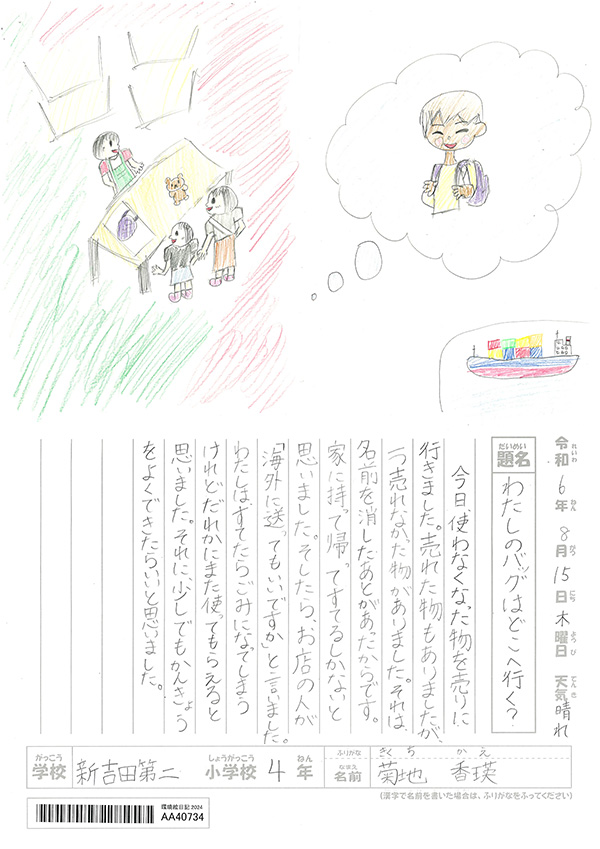 令和6年8月15日木曜日 天気晴れ
れいわ ねん がつ にち ようび てんき
だいめい
題名 わたしのバッグはどこへ行く?
今日、使わなくなった物を売りに
行きました。売れた物もありましたが、
一つ売れなかった物がありました。それは、
名前を消したあとがあったからです。
家に持って帰ってすてるしかないと
思いました。そしたら、お店の人が
「海外に送ってもいいですか」と言いました。
わたしは、すてたらごみになってしまう
けれどだれかにまた使ってもらえると
思いました。それに、少しでもかんきょう
をよくできたらいいと思いました。
がっこう しょうがっこう ねん ふりがな きくち かえ
学校 新吉田第二 小学校 4年 なまえ 名前 菊地 香瑛
(漢字で名前を書いた場合は、ふりがなをふってください)
環境絵日記2024
AA40734